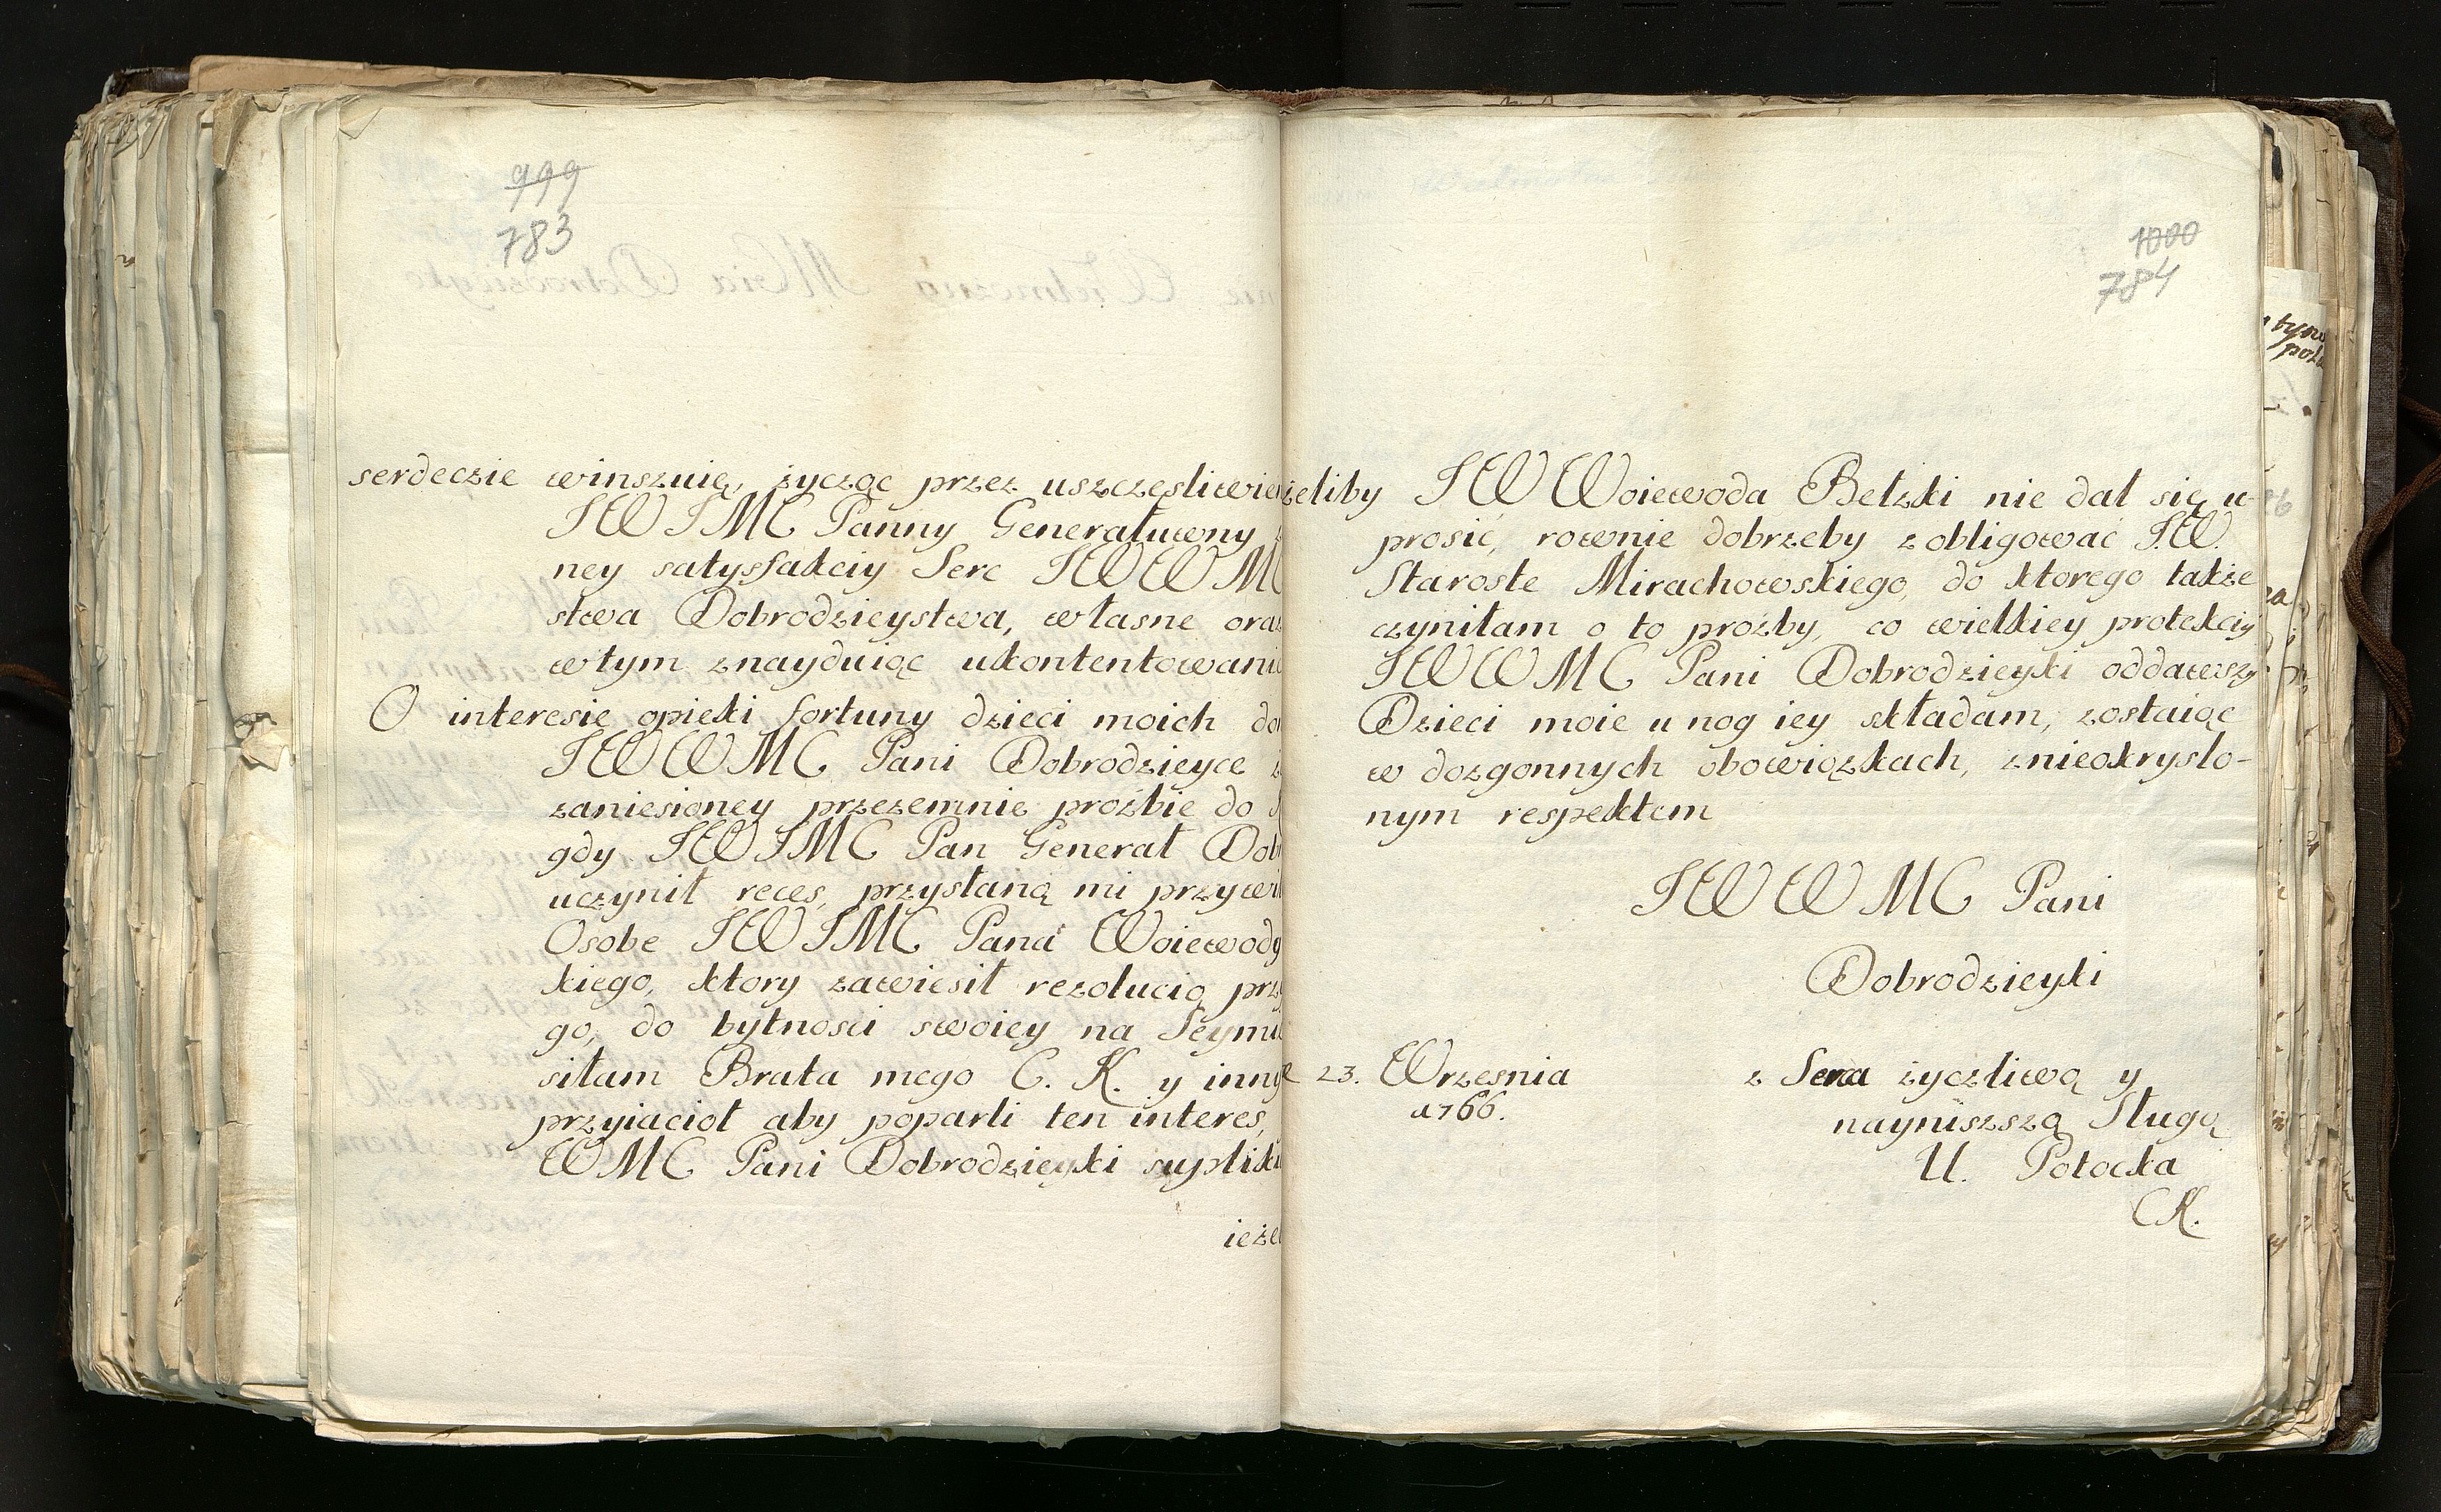 999
783
serdecznie winszuię, życząc przez uszczęsliwie
JW JMC Panny Generałuwny
ney satysfakciy Serc JWWMC
stwa Dobrodzieystwa, własne oraz
wtym znayduiąc ukontentowanie
O interesie opieki fortuny dzieci moich do
JWWMC Pani Dobrodzieyce
zaniesioney przezemnie proźbie do
gdy JWJMC Pan Generał Dob
uczynił reces, przysłaną mi przywil
Osobe JWJMC Pana Woiewody
kiego, ktory zawiesił rezolucią prz
go, do bytnosci swoiey na Seymie
siłam Brata mego C. K. y inny
przyiacioł aby poparli ten interes,
WMC Pani Dobrodzieyki supliku
ieże
1000
784
żeliby JW Woiewoda Bełzki nie dał się u-
prosić, rownie dobrzeby zobligować J.W.
Staroste Mirachowskiego, do ktorego także
czyniłam o to proźby, co wielkiey protekciy
JWWMC Pani Dobrodzieyki oddawszy
Dzieci moie u nog iey składam, zostaiąc
w dozgonnych obowiązkach, znieokryslo-
nym respektem
JWWMC Pani
Dobrodzieyki
23. Wrzesnia
1766.
z Serca życzliwą y
nayniszszą Sługą
U. Potocka
CK.